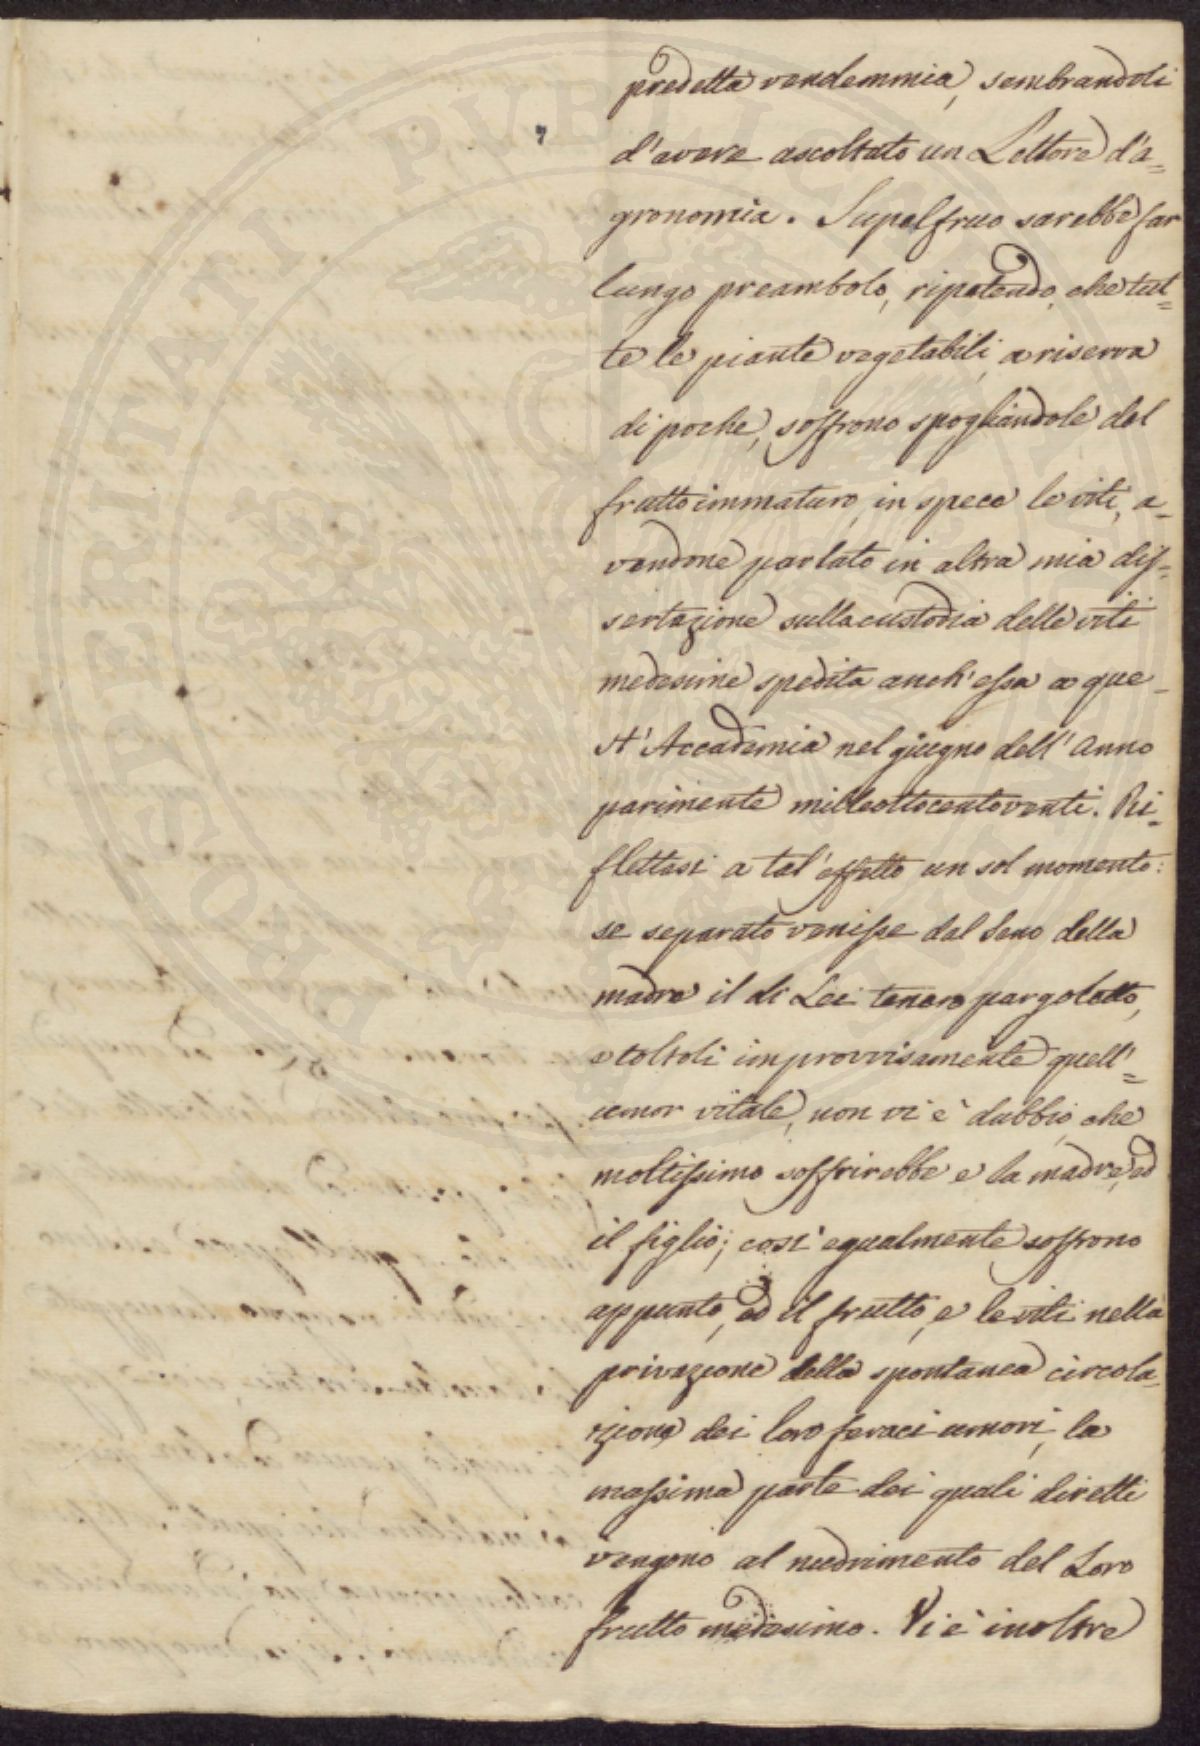 predetta vendemmia, sembrandoli
d'avere ascoltato un Lettore d'a=
gronomia. Superfluo sarebbe far
lungo preambolo, ripetendo, che tut=
te le piante vegetabili, a riserva
di poche, soffrono spogliandole del
frutto immaturo, in spece le viti, a=
vendone parlato in altra mia dis=
sertazione sulla custodia delle viti
medesime spedita anch'essa a que=
st'Accademia nel giugno dell'Anno
parimente milleottocentoventi. Ri=
flettasi a tal'effetto un sol momento:
se separato venisse dal seno della
madre il di Lei tenero pargoletto,
e toltoli improvvisamente quell'=
umor vitale, non vi è dubbio, che
moltissimo soffrirebbe e la madre, ed
il figlio; così egualmente soffrono
appunto, ed il frutto, e le viti nella
privazione della spontanea circola=
zione dei loro feraci umori, la
massima parte dei quali diretti
vengono al nudrimento del Loro
frutto medesimo. Vi è inoltre
PROSPERITATI PUBLICAE